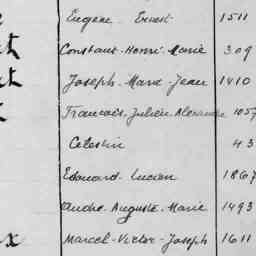 Eugène Ernest 1511
Constant-Henri-Marie 309
Joseph-Marie-Jean 1410
Francois-Julien Alexandre 1057
Celestin 43
Edouard-Lucien 1867
André-Auguste-Marie 1493
Marcel-Victor-Joseph 1611